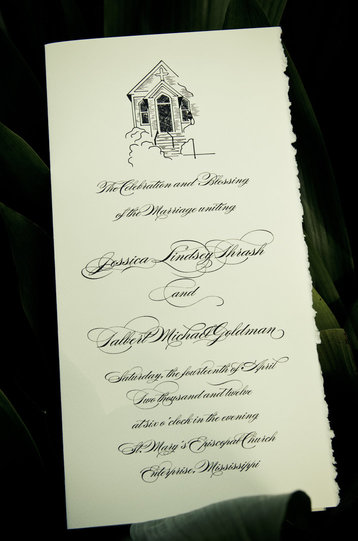 The Celebration and Blessing
of the Marriage uniting
Jessica Lindsey Thrash
and
Talbert Michael Goldman
Saturday, the fourteenth of April
Two thousand and twelve
at six o'clock in the evening
St. Mary's Episcopal Church
Enterprise, Mississippi